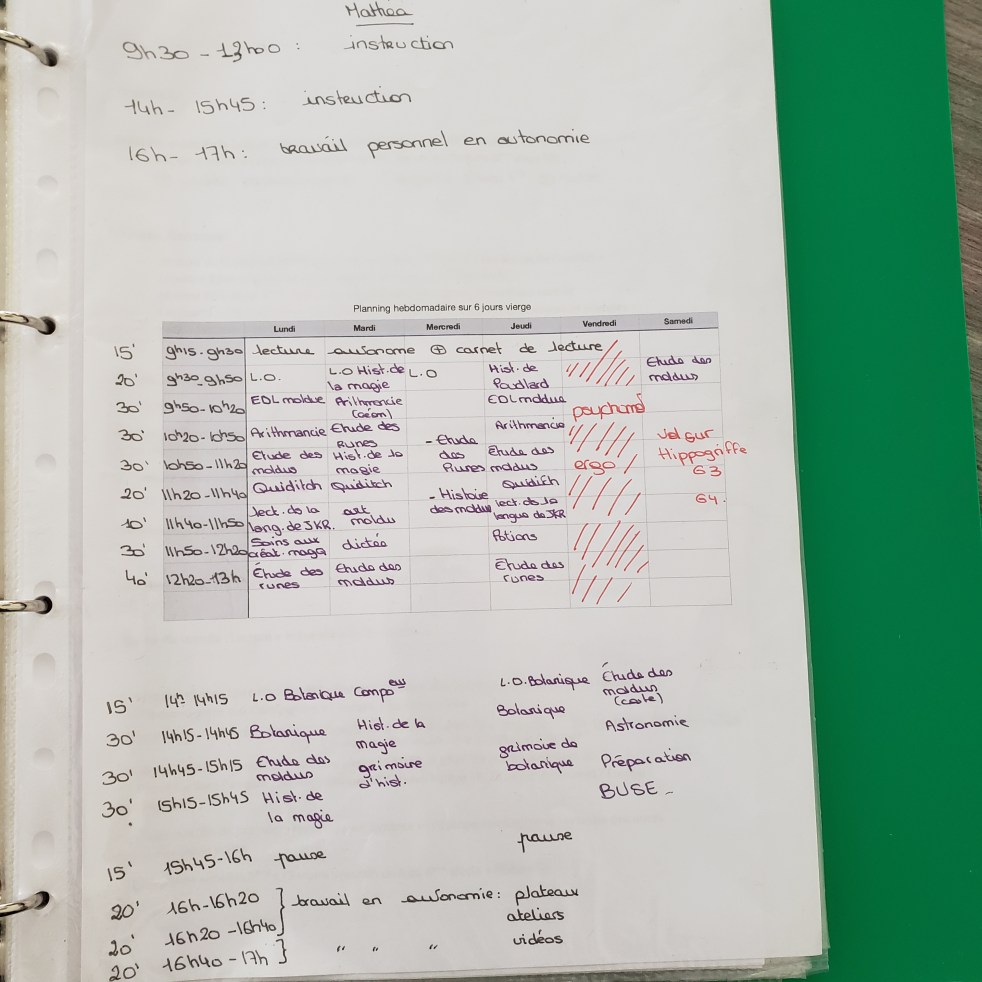 Mathéa
9h30 - 13h00 : instruction
14h - 15h45 : instruction
16h - 17h : travail personnel en autonomie
Planning hebdomadaire sur 6 jours vierge
Lundi Mardi Mercredi Jeudi Vendredi Samedi
15' 9h15-9h30 lecture autonome ⊕ carnet de lecture
20' 9h30-9h50 L.O. L.O Hist. de la magie L.O Hist. de Poudlard Etude des moldus
30' 9h50-10h20 EDL moldue Arithmencie (Géom) EDL moldue psychomot
30' 10h20-10h50 Arithmancie Etude des Runes - Etude des Runes Arithmancie Vol sur Hippogriffe G3
30' 10h50-11h20 Etude des moldus Hist. de la magie Etude des moldus ergo
20' 11h20-11h40 Quiditch Quiditch - Histoire des moldus Quidich G4.
10' 11h40-11h50 lect. de la lang. de JKR. art moldu lect. de la langue de JKR
30' 11h50-12h20 Soins aux créat. mag dictée Potions
40' 12h20-13h Étude des runes Etude des moldus Etude des runes
15' 14h-14h15 L.O Botanique Compo L.O. Botanique Étude des moldus (carte)
30' 14h15-14h45 Botanique Hist. de la magie Botanique Astronomie
30' 14h45-15h15 Etude des moldus grimoire d'hist. grimoire de botanique Préparation
30' 15h15-15h45 Hist. de la magie BUSE -
15' 15h45-16h pause pause
20' 16h-16h20 } travail en autonomie : plateaux
20' 16h20-16h40 ateliers
20' 16h40-17h } " " " vidéos